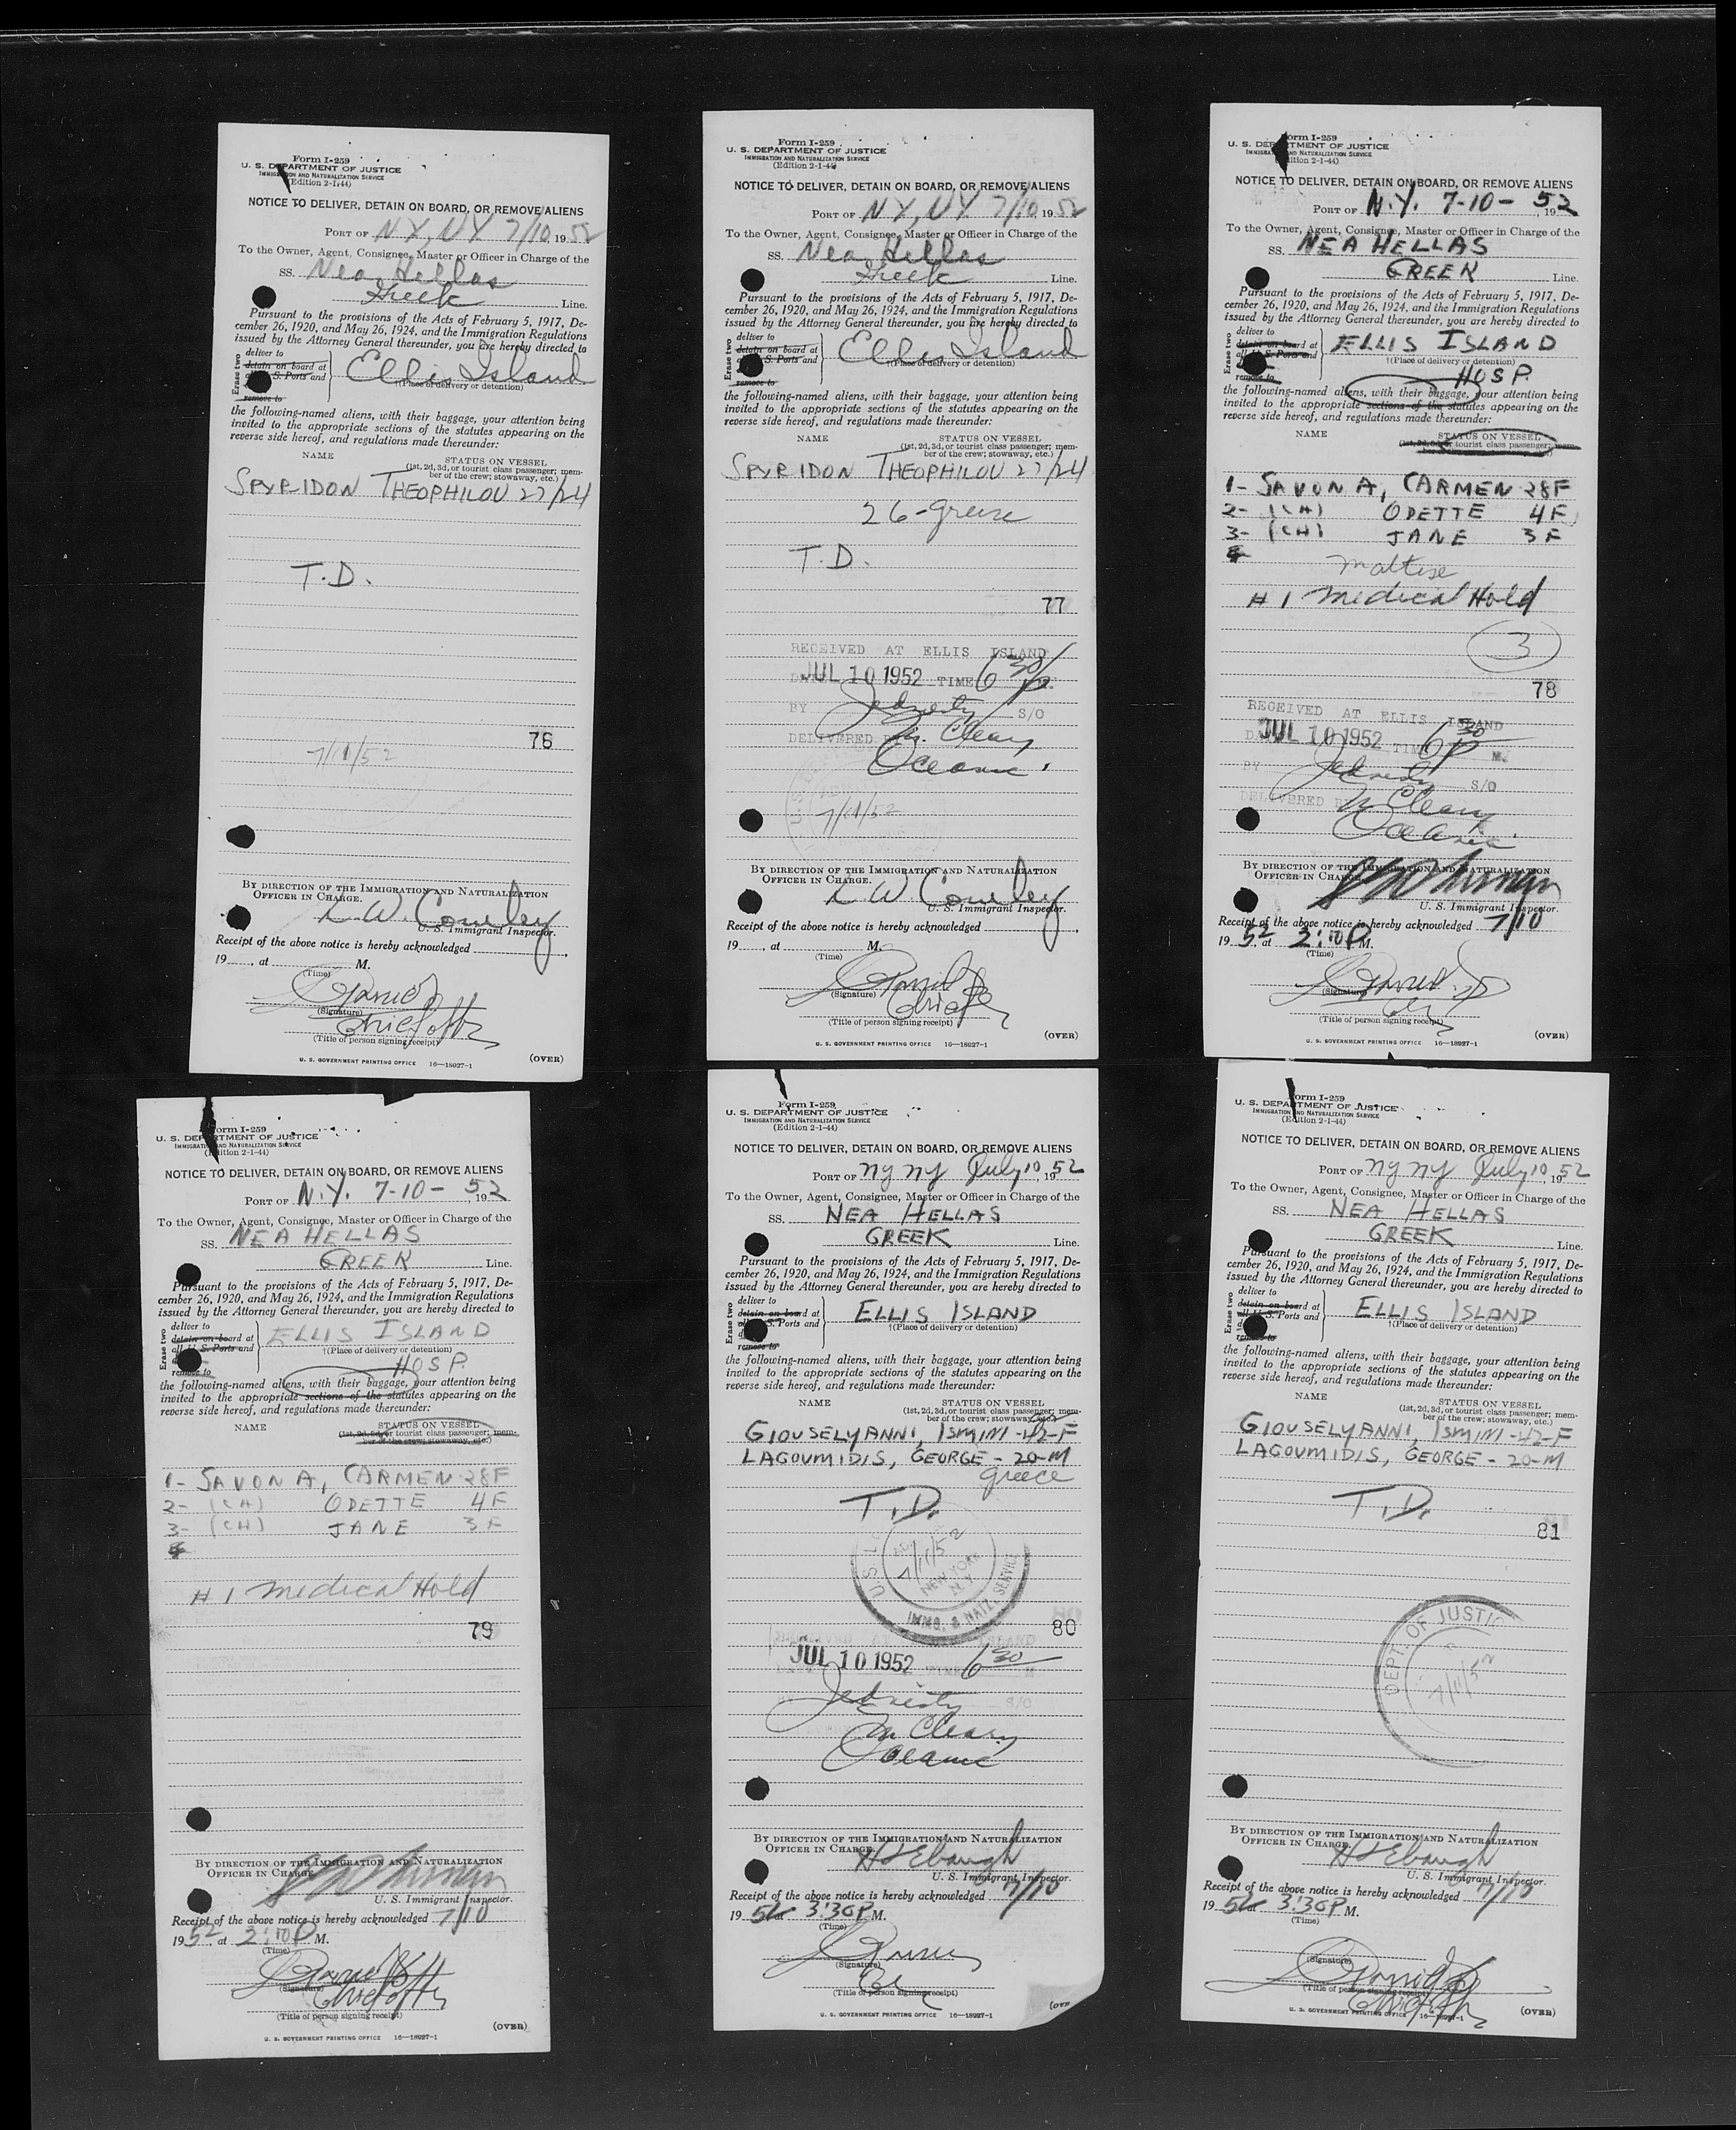 Form I-259
U. S. DEPARTMENT OF JUSTICE
IMMIGRATION AND NATURALIZATION SERVICE
(Edition 2-1-44)
NOTICE TO DELIVER, DETAIN ON BOARD, OR REMOVE ALIENS
PORT OF N.Y., N.Y. 7/10, 1952
To the Owner, Agent, Consignee, Master or Officer in Charge of the
SS. Nea Hellas
Greek Line.
Pursuant to the provisions of the Acts of February 5, 1917, De-
cember 26, 1920, and May 26, 1924, and the Immigration Regulations
issued by the Attorney General thereunder, you are hereby directed to
Erase two
deliver to
detain on board at
all U. S. Ports and
remove to
Ellis Island
†(Place of delivery or detention)
the following-named aliens, with their baggage, your attention being
invited to the appropriate sections of the statutes appearing on the
reverse side hereof, and regulations made thereunder:
NAME STATUS ON VESSEL
(1st, 2d, 3d, or tourist class passenger; mem-
ber of the crew; stowaway, etc.)
SPYRIDON THEOPHILOU 27/24
T.D.
76
7/11/52
BY DIRECTION OF THE IMMIGRATION AND NATURALIZATION
OFFICER IN CHARGE.
L. W. Cowley
U. S. Immigrant Inspector.
Receipt of the above notice is hereby acknowledged
19 , at M.
(Time)
(Signature)
Chief Offr
(Title of person signing receipt)
U. S. GOVERNMENT PRINTING OFFICE 16—18927-1
(OVER)
Form I-259
U. S. DEPARTMENT OF JUSTICE
IMMIGRATION AND NATURALIZATION SERVICE
(Edition 2-1-44)
NOTICE TO DELIVER, DETAIN ON BOARD, OR REMOVE ALIENS
PORT OF N.Y., N.Y. 7/10, 1952
To the Owner, Agent, Consignee, Master or Officer in Charge of the
SS. Nea Hellas
Greek Line.
Pursuant to the provisions of the Acts of February 5, 1917, De-
cember 26, 1920, and May 26, 1924, and the Immigration Regulations
issued by the Attorney General thereunder, you are hereby directed to
Erase two
deliver to
detain on board at
all U. S. Ports and
remove to
Ellis Island
†(Place of delivery or detention)
the following-named aliens, with their baggage, your attention being
invited to the appropriate sections of the statutes appearing on the
reverse side hereof, and regulations made thereunder:
NAME STATUS ON VESSEL
(1st, 2d, 3d, or tourist class passenger; mem-
ber of the crew; stowaway, etc.)
SPYRIDON THEOPHILOU 27/24
26-Greece
T.D.
77
RECEIVED AT ELLIS ISLAND
DATE JUL 10 1952 TIME 6 30 P M.
BY S/O
DELIVERED BY McCleary
Oceanic
7/11/52
BY DIRECTION OF THE IMMIGRATION AND NATURALIZATION
OFFICER IN CHARGE.
L. W. Cowley
U. S. Immigrant Inspector.
Receipt of the above notice is hereby acknowledged
19 , at M.
(Time)
(Signature)
(Title of person signing receipt)
U. S. GOVERNMENT PRINTING OFFICE 16—18927-1
(OVER)
Form I-259
U. S. DEPARTMENT OF JUSTICE
IMMIGRATION AND NATURALIZATION SERVICE
(Edition 2-1-44)
NOTICE TO DELIVER, DETAIN ON BOARD, OR REMOVE ALIENS
PORT OF N.Y. 7-10-, 1952
To the Owner, Agent, Consignee, Master or Officer in Charge of the
SS. NEA HELLAS
GREEK Line.
Pursuant to the provisions of the Acts of February 5, 1917, De-
cember 26, 1920, and May 26, 1924, and the Immigration Regulations
issued by the Attorney General thereunder, you are hereby directed to
Erase two
deliver to
detain on board at
all U. S. Ports and
remove to
ELLIS ISLAND
†(Place of delivery or detention)
HOSP.
the following-named aliens, with their baggage, your attention being
invited to the appropriate sections of the statutes appearing on the
reverse side hereof, and regulations made thereunder:
NAME STATUS ON VESSEL
(1st, 2d, 3d, or tourist class passenger; mem-
1- SAVONA, CARMEN 28F
2- (CH) ODETTE 4F
3- (CH) JANE 3F
4
Maltese
# 1 Medical Hold
3
78
RECEIVED AT ELLIS ISLAND
DATE JUL 10 1952 TIME 6 30 P M.
BY S/O
DELIVERED BY McCleary
Oceanic
BY DIRECTION OF THE IMMIGRATION AND NATURALIZATION
OFFICER IN CHARGE.
U. S. Immigrant Inspector.
Receipt of the above notice is hereby acknowledged 7/10
1952, at 2:10 P M.
(Time)
(Signature)
(Title of person signing receipt)
U. S. GOVERNMENT PRINTING OFFICE 16—18927-1
(OVER)
Form I-259
U. S. DEPARTMENT OF JUSTICE
IMMIGRATION AND NATURALIZATION SERVICE
(Edition 2-1-44)
NOTICE TO DELIVER, DETAIN ON BOARD, OR REMOVE ALIENS
PORT OF N.Y. 7-10-, 1952
To the Owner, Agent, Consignee, Master or Officer in Charge of the
SS. NEA HELLAS
GREEK Line.
Pursuant to the provisions of the Acts of February 5, 1917, De-
cember 26, 1920, and May 26, 1924, and the Immigration Regulations
issued by the Attorney General thereunder, you are hereby directed to
Erase two
deliver to
detain on board at
all U. S. Ports and
remove to
ELLIS ISLAND
†(Place of delivery or detention)
HOSP.
the following-named aliens, with their baggage, your attention being
invited to the appropriate sections of the statutes appearing on the
reverse side hereof, and regulations made thereunder:
NAME STATUS ON VESSEL
(1st, 2d, 3d, or tourist class passenger; mem-
ber of the crew; stowaway, etc.)
1- SAVONA, CARMEN 28F
2- (CH) ODETTE 4F
3- (CH) JANE 3F
4
# 1 Medical Hold
79
BY DIRECTION OF THE IMMIGRATION AND NATURALIZATION
OFFICER IN CHARGE.
U. S. Immigrant Inspector.
Receipt of the above notice is hereby acknowledged 7/10
1952, at 2:10 P M.
(Time)
(Signature)
Chief Offr
(Title of person signing receipt)
U. S. GOVERNMENT PRINTING OFFICE 16—18927-1
(OVER)
Form I-259
U. S. DEPARTMENT OF JUSTICE
IMMIGRATION AND NATURALIZATION SERVICE
(Edition 2-1-44)
NOTICE TO DELIVER, DETAIN ON BOARD, OR REMOVE ALIENS
PORT OF NY NY July 10, 1952
To the Owner, Agent, Consignee, Master or Officer in Charge of the
SS. NEA HELLAS
GREEK Line.
Pursuant to the provisions of the Acts of February 5, 1917, De-
cember 26, 1920, and May 26, 1924, and the Immigration Regulations
issued by the Attorney General thereunder, you are hereby directed to
Erase two
deliver to
detain on board at
all U. S. Ports and
remove to
ELLIS ISLAND
†(Place of delivery or detention)
the following-named aliens, with their baggage, your attention being
invited to the appropriate sections of the statutes appearing on the
reverse side hereof, and regulations made thereunder:
NAME STATUS ON VESSEL
(1st, 2d, 3d, or tourist class passenger; mem-
ber of the crew; stowaway, etc.)
GIOUSELYANNI, ISMINI -42-F
LAGOUMIDIS, GEORGE - 20-M
Greece
T.D.
7/11/52
NEW YORK
N.Y.
IMMG. & NATZ. SERVICE
80
JUL 10 1952 TIME 6 30 M
S/O
McCleary
Oceanic
BY DIRECTION OF THE IMMIGRATION AND NATURALIZATION
OFFICER IN CHARGE.
H S Ebaugh
U. S. Immigrant Inspector.
Receipt of the above notice is hereby acknowledged 7/10
1952 at 3:30 P M.
(Time)
(Signature)
(Title of person signing receipt)
U. S. GOVERNMENT PRINTING OFFICE 16—18927-1
Form I-259
U. S. DEPARTMENT OF JUSTICE
IMMIGRATION AND NATURALIZATION SERVICE
(Edition 2-1-44)
NOTICE TO DELIVER, DETAIN ON BOARD, OR REMOVE ALIENS
PORT OF NY NY July 10, 1952
To the Owner, Agent, Consignee, Master or Officer in Charge of the
SS. NEA HELLAS
GREEK Line.
Pursuant to the provisions of the Acts of February 5, 1917, De-
cember 26, 1920, and May 26, 1924, and the Immigration Regulations
issued by the Attorney General thereunder, you are hereby directed to
Erase two
deliver to
detain on board at
all U. S. Ports and
remove to
ELLIS ISLAND
†(Place of delivery or detention)
the following-named aliens, with their baggage, your attention being
invited to the appropriate sections of the statutes appearing on the
reverse side hereof, and regulations made thereunder:
NAME STATUS ON VESSEL
(1st, 2d, 3d, or tourist class passenger; mem-
ber of the crew; stowaway, etc.)
GIOUSELYANNI, ISMINI -42-F
LAGOUMIDIS, GEORGE - 20-M
T.D.
81
DEPT. OF JUSTIC
7/11/52
BY DIRECTION OF THE IMMIGRATION AND NATURALIZATION
OFFICER IN CHARGE.
H S Ebaugh
U. S. Immigrant Inspector.
Receipt of the above notice is hereby acknowledged 7/10
1952 at 3:30 P M.
(Time)
(Signature)
(Title of person signing receipt)
U. S. GOVERNMENT PRINTING OFFICE 16—18927-1
(OVER)